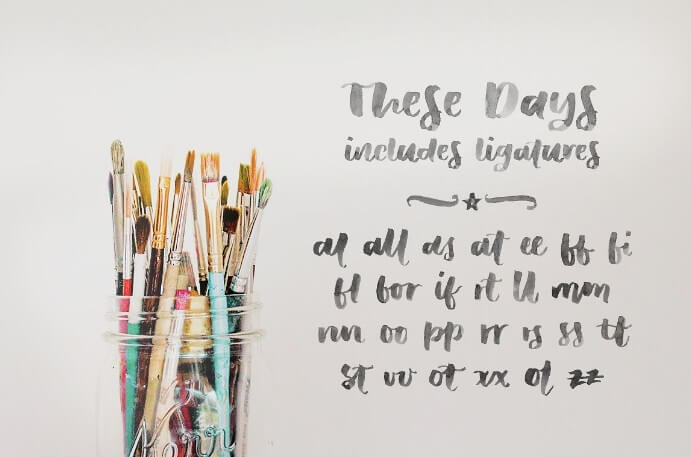 These Days
includes ligatures
al all as at ee ff fi
fl for if rt ll mm
nn oo pp rr rs ss tt
st vv ot xx ol zz
Kerr